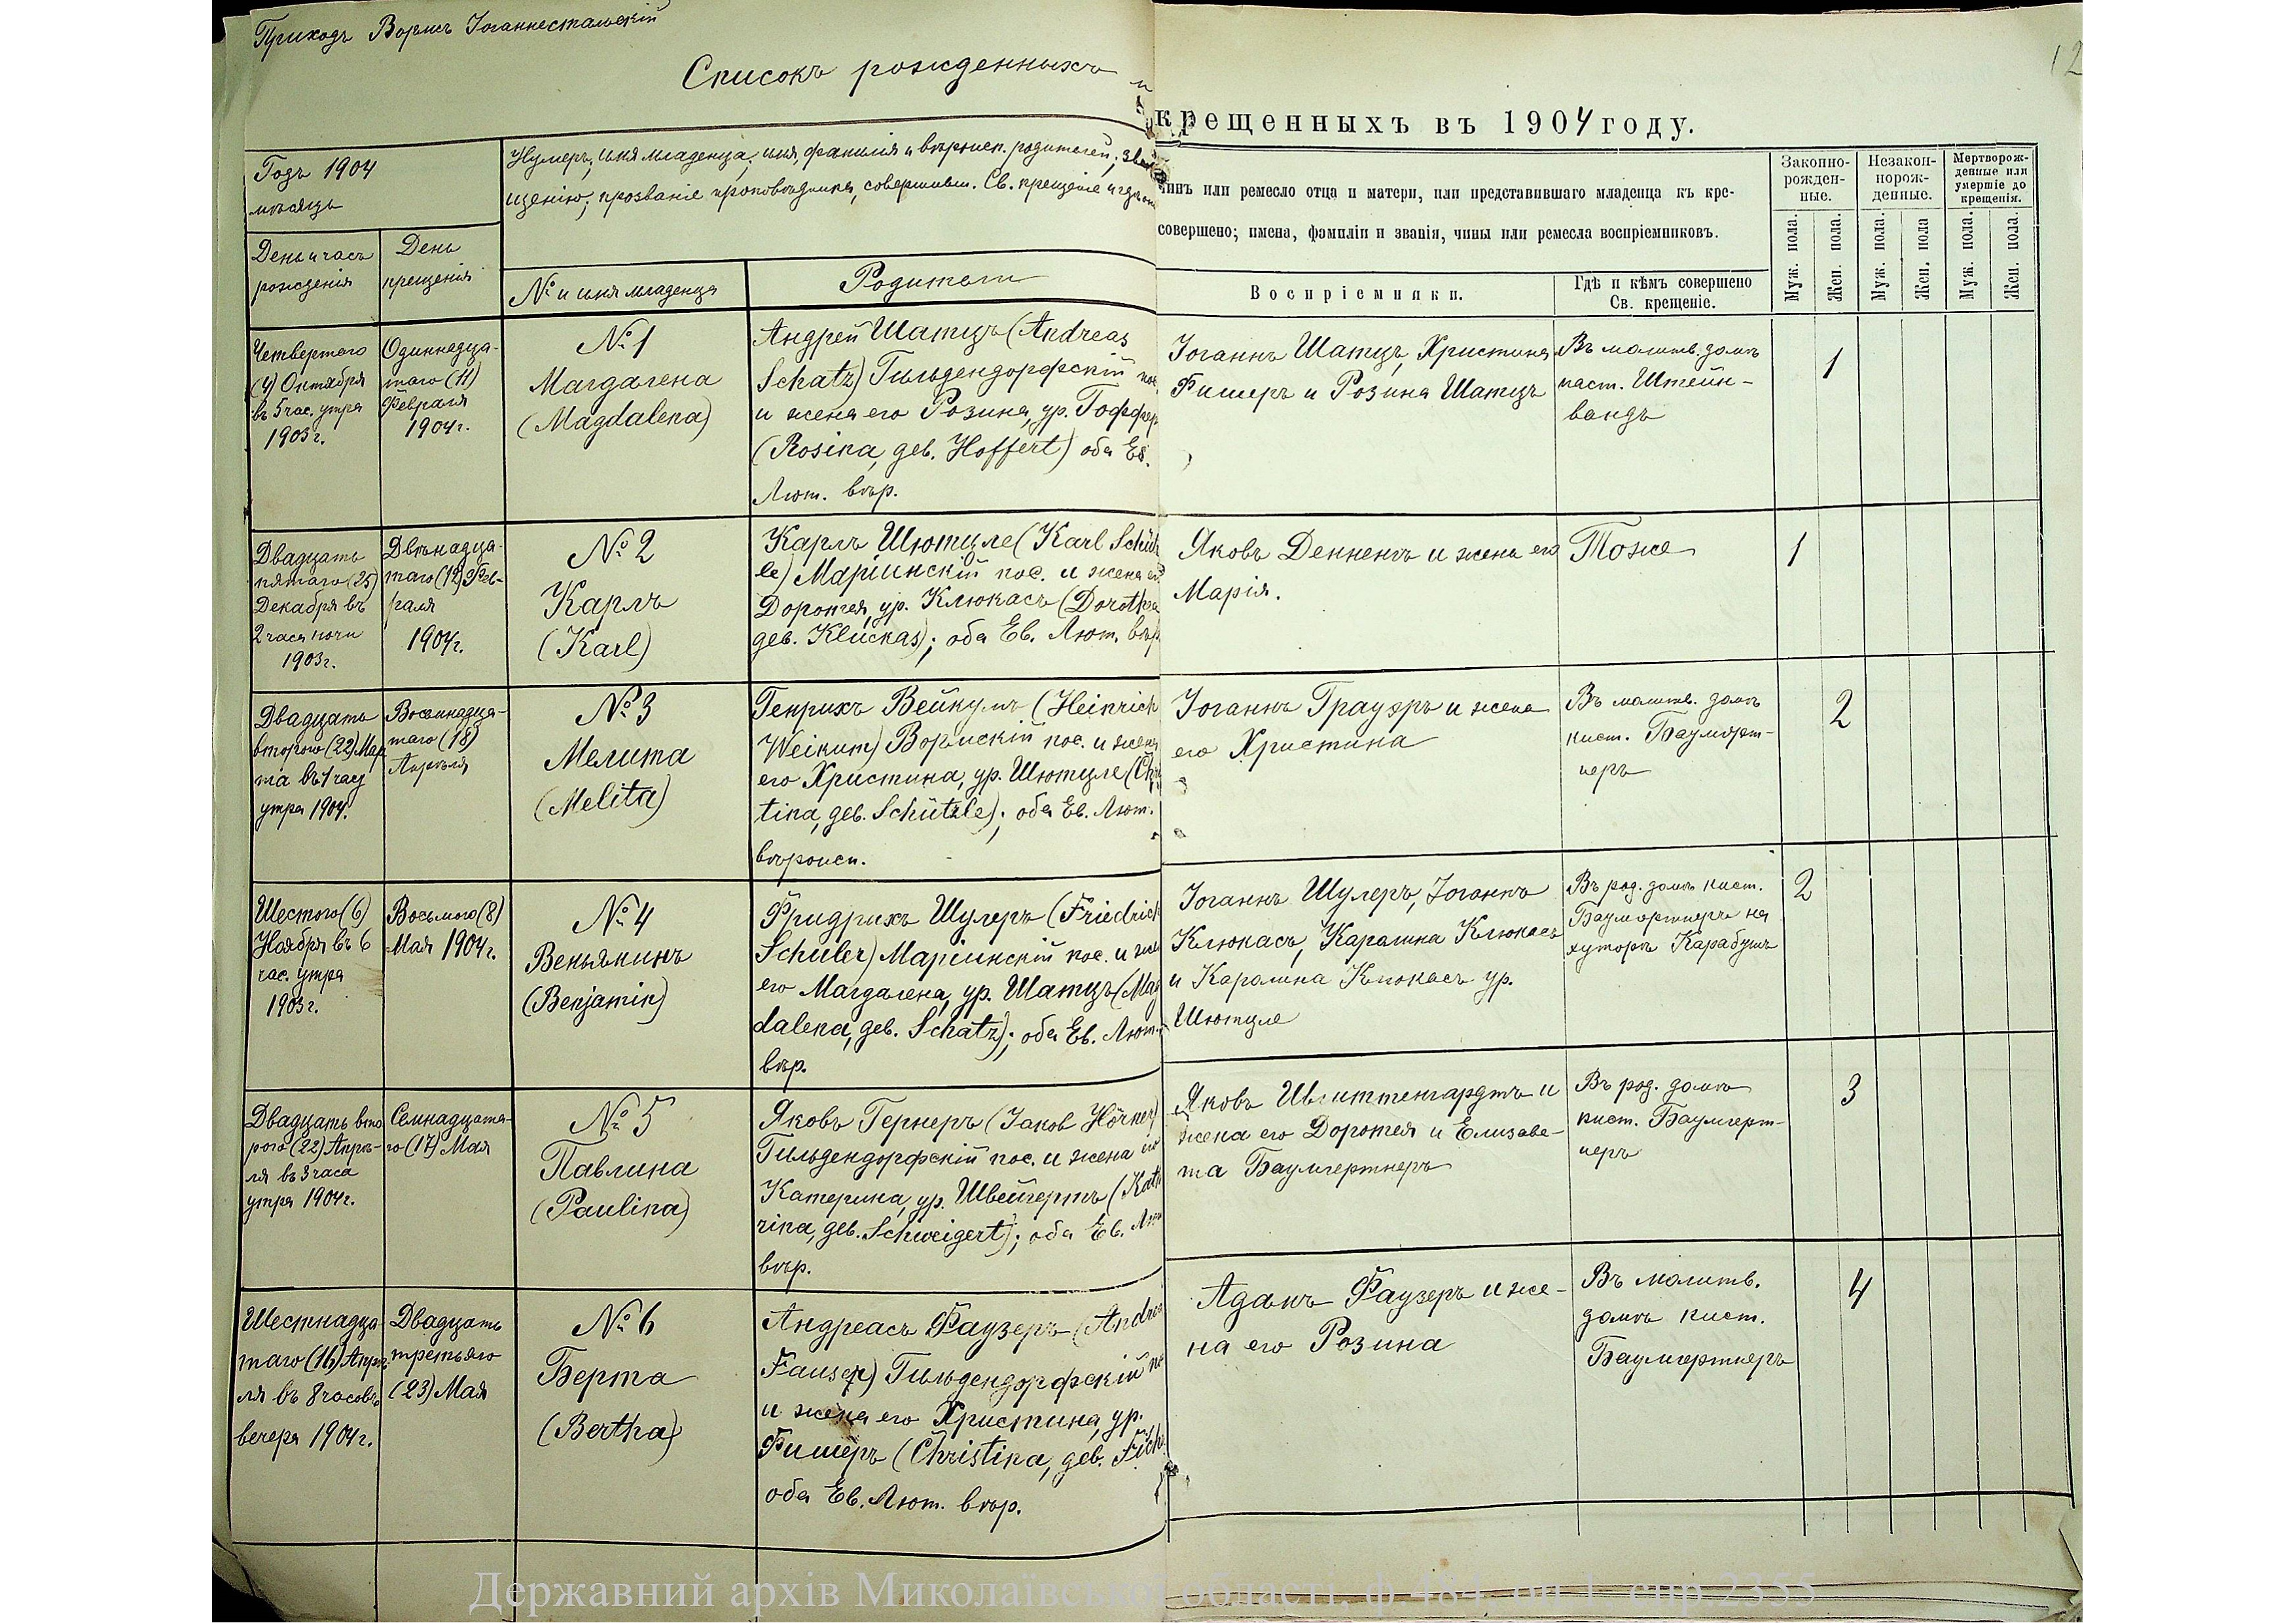 Приходъ Вормсъ Іоганнестальскій
12
Списокъ рожденныхъ и
крещенныхъ въ 1904 году.
Годъ 1904
мѣсяцъ
День и часъ
рожденія
День
крещенія
Нумеръ, имя младенца, имя, фамилія и вѣроисп. родителей;
щенію; прозваніе проповѣдника, совершивш. Св. крещеніе и гдѣ
№ и имя младенца
Родители
чинъ или ремесло отца и матери, или представившаго младенца къ кре-
совершено; имена, фамиліи и званія, чины или ремесла воспріемниковъ.
Воспріемники.
Гдѣ и кѣмъ совершено
Св. крещеніе.
Законно-
рожден-
ные.
Незакон-
норож-
денные.
Мертворож-
денные или
умершіе до
крещенія.
Муж. пола.
Жен. пола.
Муж. пола.
Жен. пола
Муж. пола.
Жен. пола.
Четвертого
(4) Октября
въ 5 час. утра
1903 г.
Одиннадца-
таго (11)
Февраля
1904 г.
№ 1
Магдалена
(Magdalena)
Андрей Шатцъ (Andreas
Schatz) Гильдендорфскій пос.
и жена его Розина, ур. Гофферт
(Rosina, geb. Hoffert) оба Ев.
Лют. вѣр.
Іоганнъ Шатцъ, Христина
Фишеръ и Розина Шатцъ
Въ молитв. домѣ
паст. Штейн-
вандъ
1
Двадцать
пятаго (25)
Декабря въ
2 часа ночи
1903 г.
Двѣнадца-
таго (12) Фев-
раля
1904 г.
№ 2
Карлъ
(Karl)
Карлъ Шютцле (Karl Schütz
le) Маріинскій пос. и жена его
Доротея, ур. Клюкасъ (Dorothea
geb. Kluckas); оба Ев. Лют. вѣр
Яковъ Денненъ и жена его
Марія.
Тоже
1
Двадцать
второго (22) Мар
та въ 1 часу
утра 1904.
Восемнадца-
таго (18)
Апрѣля
№ 3
Мелита
(Melita)
Генрихъ Вейкумъ (Heinrich
Weikum) Вормскій пос. и жена
его Христина, ур. Шютцле (Chris
tina, geb. Schützle); оба Ев. Лют.
вѣроисп.
Іоганнъ Грауэръ и жена
его Христина
Въ молитв. домѣ
кист. Баумгерт-
неръ
2
Шестого (6)
Ноября въ 6
час. утра
1903 г.
Восьмого (8)
Мая 1904 г.
№ 4
Веньяминъ
(Benjamin)
Фридрихъ Шулеръ (Friedrich
Schuler) Маріинскій пос. и жена
его Магдалена, ур. Шатцъ (Mag
dalena, geb. Schatz); оба Ев. Лют.
вѣр.
Іоганнъ Шулеръ, Іоганнъ
Клюкасъ, Каролина Клюкасъ
и Каролина Клюкасъ ур.
Шютцле
Въ род. домѣ кист.
Баумгертнеръ на
хуторѣ Карабушъ
2
Двадцать вто
рого (22) Апрѣ-
ля въ 3 часа
утра 1904 г.
Семнадцата-
го (17) Мая
№ 5
Павлина
(Paulina)
Яковъ Гернеръ (Jakob Hörner)
Гильдендорфскій пос. и жена его
Катерина, ур. Швейгертъ (Kath
rina, geb. Schweigert); оба Ев. Лют
вѣр.
Яковъ и
жена его Доротея и Елизаве-
та Баумгертнеръ
Въ род. домѣ
кист. Баумгерт-
неръ
3
Шестнадца
таго (16) Апрѣ-
ля въ 8 часовъ
вечера 1904 г.
Двадцать
третьяго
(23) Мая
№ 6
Берта
(Bertha)
Андреасъ Фаузеръ (Andreas
Fauser) Гильдендорфскій по
и жена его Христина, ур.
Фишеръ (Christina, geb. Fisch
оба Ев. Лют. вѣр.
Адамъ Фаузеръ и же-
на его Розина
Въ молитв.
домѣ кист.
Баумгертнеръ
4
Державний архів Миколаївської області, ф.484, оп.1, спр.2355